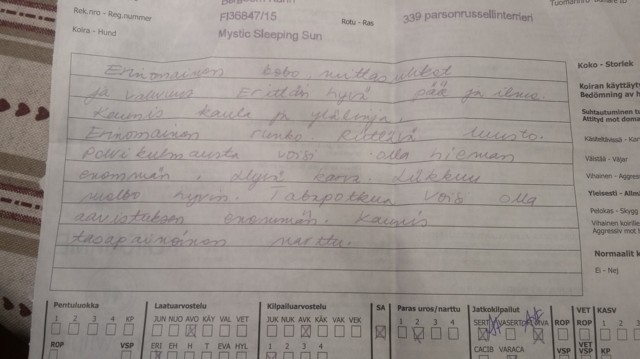 Rek.nro - Reg.nummer
FI36847/15
Rotu - Ras
339 parsonrussellinterrieri
Koira - Hund
Mystic Sleeping Sun
Erinomainen koko, mittasuhteet
ja vahvuus Erittäin hyvä pää ja ilme
Kaunis kaula ja ylälinja.
Erinomainen runko Riittävä luusto.
Polvikulmausta voisi olla hieman
enemmän. Hyvä karva. Liikkuu
melko hyvin. Takapotkua voisi olla
aavistuksen enemmän. Kaunis
tasapainoinen narttu.
Koko - Storlek
Koiran käyttäyty
Bedömning av h
Suhtautuminen tu
Attityd mot doma
Käsiteltävissä - Kan
Väistää - Väjar
Vihainen - Aggres
Yleisesti - Allm
Pelokas - Skygg
Vihainen koirille
Aggressiv mot
Normaalit k
Ei - Nej
Pentuluokka
1 2 3 4 KP
ROP VSP
Laatuarvostelu
JUN NUO AVO KÄY VAL VET
ERI EH H T EVA HYL
Kilpailuarvostelu
JUK NUK AVK KÄK VAK VEK
1 2 3 4
SA
Paras uros/narttu
1 2 3 4
Jatkokilpailut
SERT VASERT VIVA
CACIB VARACA
ROP
VSP
VET
VET ROP
VET VSP
KASV
1 2 3 4
KP